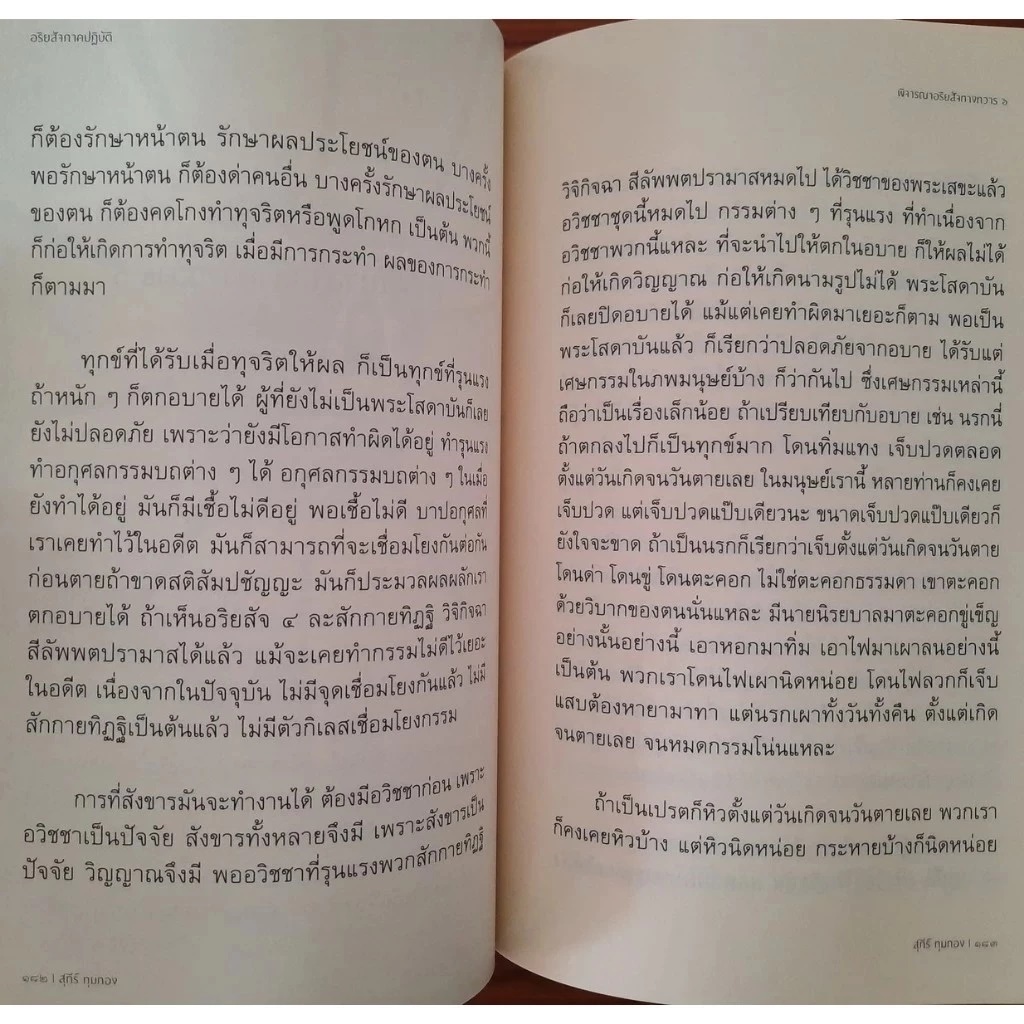 อริยสัจภาคปฏิบัติ
ก็ต้องรักษาหน้าตน รักษาผลประโยชน์ของตน บางครั้ง
พอรักษาหน้าตน ก็ต้องด่าคนอื่น บางครั้งรักษาผลประโยชน์
ของตน ก็ต้องคดโกงทำทุจริตหรือพูดโกหก เป็นต้น พวกนี้
ก็ก่อให้เกิดการทำทุจริต เมื่อมีการกระทำ ผลของการกระทำ
ก็ตามมา
ทุกข์ที่ได้รับเมื่อทุจริตให้ผล ก็เป็นทุกข์ที่รุนแรง
ถ้าหนัก ๆ ก็ตกอบายได้ ผู้ที่ยังไม่เป็นพระโสดาบันก็เลย
ยังไม่ปลอดภัย เพราะว่ายังมีโอกาสทำผิดได้อยู่ ทำรุนแรง
ทำอกุศลกรรมบถต่าง ๆ ได้ อกุศลกรรมบถต่าง ๆ ในเมื่อ
ยังทำได้อยู่ มันก็มีเชื้อไม่ดีอยู่ พอเชื้อไม่ดี บาปอกุศลที่
เราเคยทำไว้ในอดีต มันก็สามารถที่จะเชื่อมโยงกันต่อกัน
ก่อนตายถ้าขาดสติสัมปชัญญะ มันก็ประมวลผลผลักเรา
ตกอบายได้ ถ้าเห็นอริยสัจ ๔ ละสักกายทิฏฐิ วิจิกิจฉา
สีลัพพตปรามาสได้แล้ว แม้จะเคยทำกรรมไม่ดีไว้เยอะ
ในอดีต เนื่องจากในปัจจุบัน ไม่มีจุดเชื่อมโยงกันแล้ว ไม่มี
สักกายทิฏฐิเป็นต้นแล้ว ไม่มีตัวกิเลสเชื่อมโยงกรรม
การที่สังขารมันจะทำงานได้ ต้องมีอวิชชาก่อน เพราะ
อวิชชาเป็นปัจจัย สังขารทั้งหลายจึงมี เพราะสังขารเป็น
ปัจจัย วิญญาณจึงมี พออวิชชาที่รุนแรงพวกสักกายทิฏฐิ
๑๘๒ | สุภีร์ ทุมทอง
พิจารณาอริยสัจทางทวาร ๖
วิจิกิจฉา สีลัพพตปรามาสหมดไป ได้วิชชาของพระเสขะแล้ว
อวิชชาชุดนี้หมดไป กรรมต่าง ๆ ที่รุนแรง ที่ทำเนื่องจาก
อวิชชาพวกนี้แหละ ที่จะนำไปให้ตกในอบาย ก็ให้ผลไม่ได้
ก่อให้เกิดวิญญาณ ก่อให้เกิดนามรูปไม่ได้ พระโสดาบัน
ก็เลยปิดอบายได้ แม้แต่เคยทำผิดมาเยอะก็ตาม พอเป็น
พระโสดาบันแล้ว ก็เรียกว่าปลอดภัยจากอบาย ได้รับแต่
เศษกรรมในภพมนุษย์บ้าง ก็ว่ากันไป ซึ่งเศษกรรมเหล่านี้
ถือว่าเป็นเรื่องเล็กน้อย ถ้าเปรียบเทียบกับอบาย เช่น นรกนี่
ถ้าตกลงไปก็เป็นทุกข์มาก โดนทิ่มแทง เจ็บปวดตลอด
ตั้งแต่วันเกิดจนวันตายเลย ในมนุษย์เรานี้ หลายท่านก็คงเคย
เจ็บปวด แต่เจ็บปวดแป๊บเดียวนะ ขนาดเจ็บปวดแป๊บเดียวก็
ยังใจจะขาด ถ้าเป็นนรกก็เรียกว่าเจ็บตั้งแต่วันเกิดจนวันตาย
โดนด่า โดนขู่ โดนตะคอก ไม่ใช่ตะคอกธรรมดา เขาตะคอก
ด้วยวิบากของตนนั่นแหละ มีนายนิรยบาลมาตะคอกขู่เข็ญ
อย่างนั้นอย่างนี้ เอาหอกมาทิ่ม เอาไฟมาเผาลนอย่างนี้
เป็นต้น พวกเราโดนไฟเผานิดหน่อย โดนไฟลวกก็เจ็บ
แสบต้องหายามาทา แต่นรกเผาทั้งวันทั้งคืน ตั้งแต่เกิด
จนตายเลย จนหมดกรรมโน่นแหละ
ถ้าเป็นเปรตก็หิวตั้งแต่วันเกิดจนวันตายเลย พวกเรา
ก็คงเคยหิวบ้าง แต่หิวนิดหน่อย กระหายบ้างก็นิดหน่อย
สุภีร์ ทุมทอง | ๑๘๓